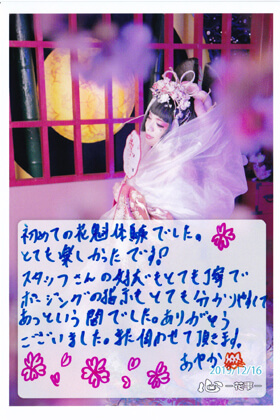 初めての花魁体験でした。
とても楽しかったです!
スタッフさんの対応もとても丁寧で
ポージングの指示もとても分かりやすくて
あっという間でした。ありがとう
ございました。また伺わせて頂きます。
あやか
2019/12/16
心 一花事一